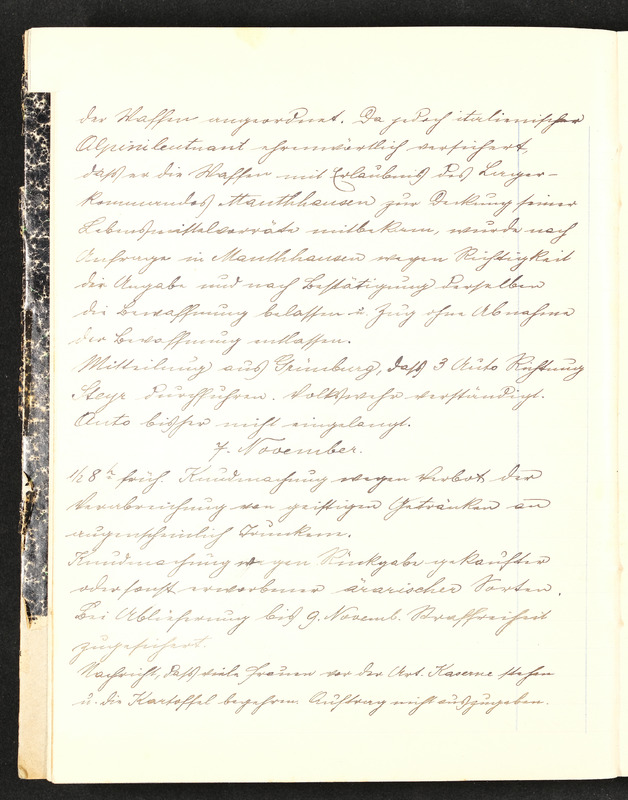 der Waffen angeordnet. Da jedoch italienischer
Alpinileutnant ehrenwörtlich versichert,
daß er die Waffen mit Erlaubnis des Lager-
kommandos Mauthhausen zur Deckung seiner
Lebensmittelvorräte mitbekam, wurde nach
Anfrage in Mauthhausen wegen Richtigkeit
der Angabe und nach Bestätigung derselben
die Bewaffnung belassen u. Zug ohne Abnahme
der Bewaffnung entlassen.
Mitteilung aus Grünburg, daß 3 Auto Richtung
Steyr durchfuhren. Volkswehr verständigt.
Auto bisher nicht eingelangt.
7. November.
1/2 8 h früh. Kundmachung wegen Verbot der
Verabreichung von geistigen Getränken an
augenscheinlich Trunkene.
Kundmachung wegen Rückgabe gekaufter
oder sonst erworbener ärarischer Sorten.
Bei Ablieferung bis 9. Novemb. Straffreiheit
zugesichert.
Nachricht, daß viele Frauen vor der Art. Kaserne stehen
u. die Kartoffel begehren. Auftrag nichts auszugeben.